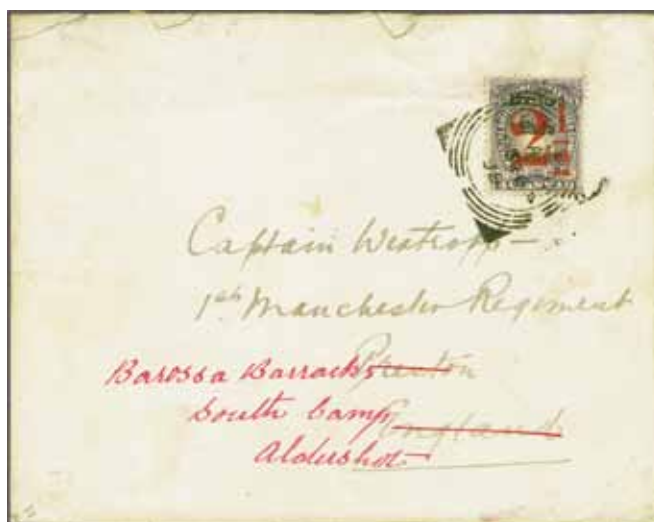 Captain Westropp
1st Manchester Regiment
Barossa Barracks Preston
South Camp England
Aldershot
2